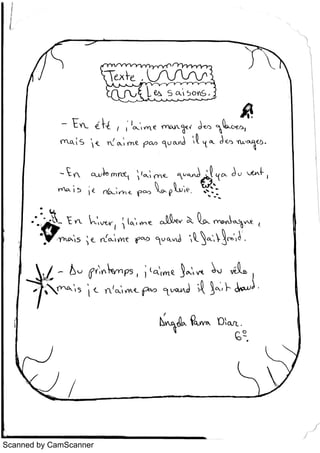 Texte.
Les saisons.
- En été, j'aime manger des glaces,
mais je n'aime pas quand il y a des nuages.
- En automne, j'aime quand il y a du vent,
mais je n'aime pas la pluie.
- En hiver, j'aime aller à la montagne,
mais je n'aime pas quand il fait froid.
- Au printemps, j'aime faire du vélo,
mais je n'aime pas quand il fait chaud.
Ángela Parra Díaz.
6º.
Scanned by CamScanner